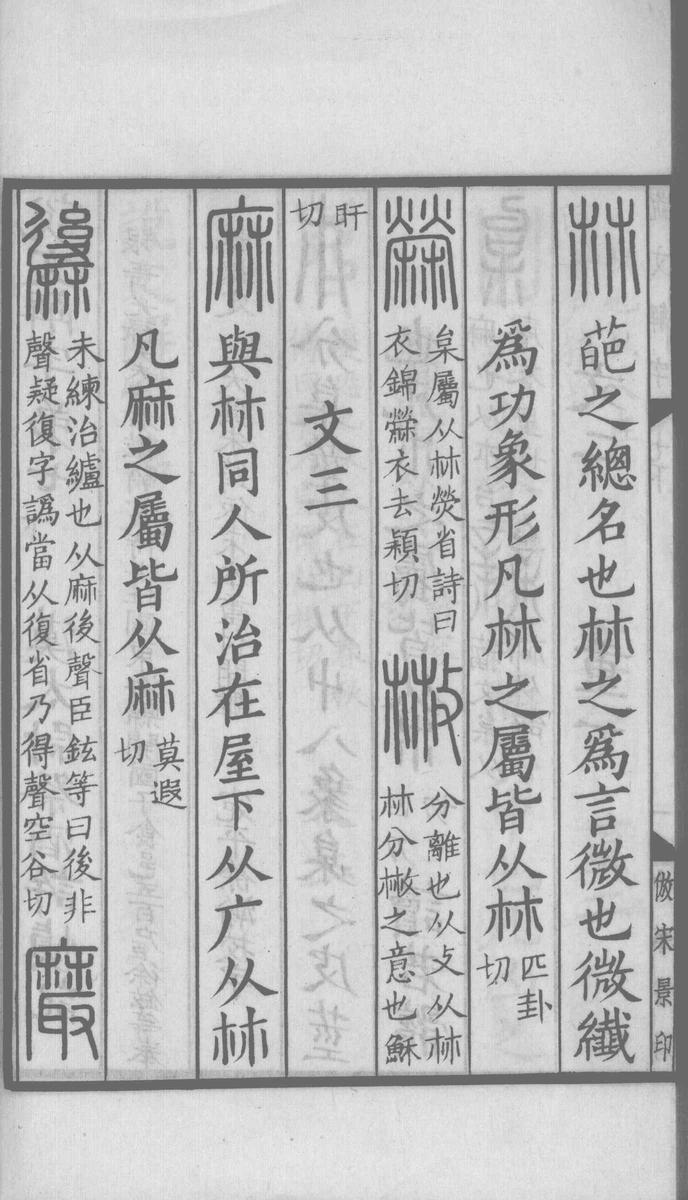 𣏟 葩之總名也𣏟之爲言微也微纖
爲功象形凡𣏟之屬皆从𣏟匹卦切
檾 枲屬从𣏟熒省詩曰
衣錦檾衣去穎切
㪔 分離也从攴从𣏟
𣏟分㪔之意也穌
旰切
文三
麻 與𣏟同人所治在屋下从广从𣏟
凡麻之屬皆从麻莫遐切
未練治纑也从麻後聲臣鉉等曰後非
聲疑復字譌當从復省乃得聲空谷切
倣宋景印